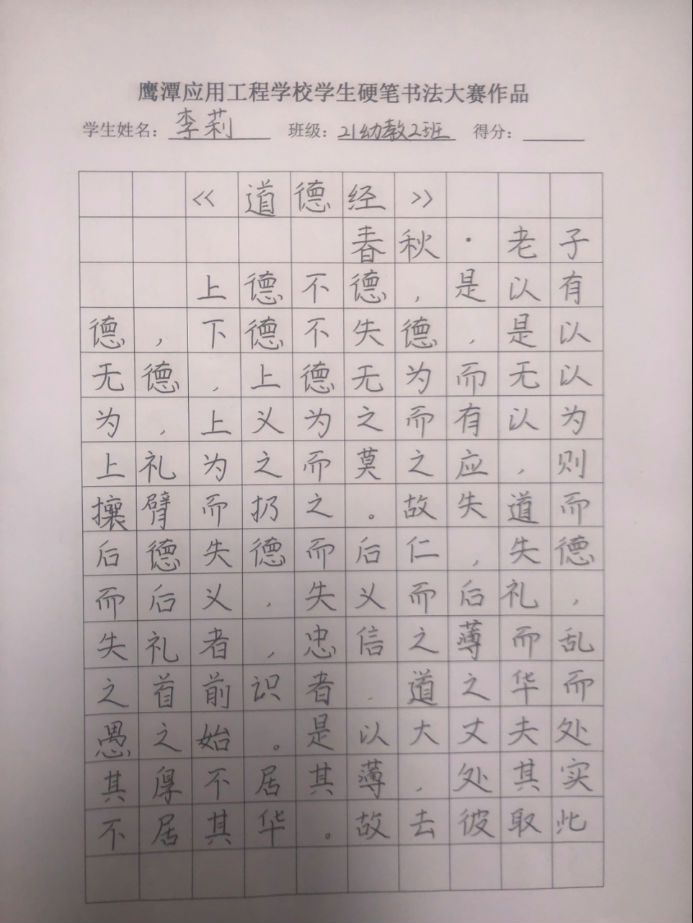 鹰潭应用工程学校学生硬笔书法大赛作品
学生姓名：李莉 班级：21幼教2班 得分：
《道德经》
春秋·老子
上德不德，是以有
德，下德不失德，是以
无德，上德无为而无以
为，上义为之而有以为
上礼为之而莫之应，则
攘臂而扔之。故失道而
后德失德而后仁，失德
而后义，失义而后礼，
失礼者，忠信之薄而乱
之首前识者，道之华而
愚之始。是以大丈夫处
其厚不居其薄，处其实
不居其华。故去彼取此